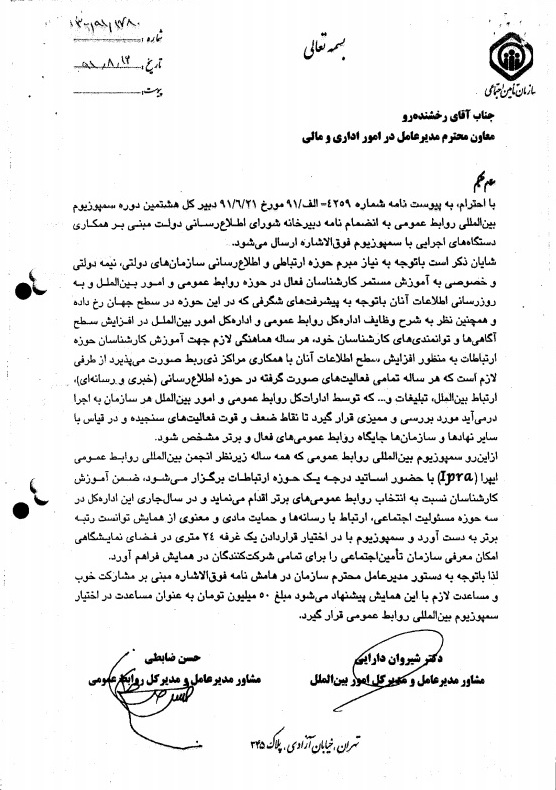 بسمه تعالی
شماره:
تاریخ: ۹۱/۸/۱۲
پیوست:
سازمان تأمین اجتماعی
جناب آقای رخشنده‌رو
معاون محترم مدیرعامل در امور اداری و مالی
با احترام، به پیوست نامه شماره ۴۲۵۹- الف/۹۱ مورخ ۹۱/۶/۲۱ دبیر کل هشتمین دوره سمپوزیوم
بین‌المللی روابط عمومی به انضمام نامه دبیرخانه شورای اطلاع‌رسانی دولت مبنی بر همکاری
دستگاه‌های اجرایی با سمپوزیوم فوق‌الاشاره ارسال می‌شود.
شایان ذکر است باتوجه به نیاز مبرم حوزه ارتباطی و اطلاع‌رسانی سازمان‌های دولتی، نیمه دولتی
و خصوصی به آموزش مستمر کارشناسان فعال در حوزه روابط عمومی و امور بین‌الملل و به
روزرسانی اطلاعات آنان باتوجه به پیشرفت‌های شگرفی که در این حوزه در سطح جهان رخ داده
و همچنین نظر به شرح وظایف اداره‌کل روابط عمومی و اداره‌کل امور بین‌الملل در افزایش سطح
آگاهی‌ها و توانمندی‌های کارشناسان خود، هر ساله هماهنگی لازم جهت آموزش کارشناسان حوزه
ارتباطات به منظور افزایش سطح اطلاعات آنان با همکاری مراکز ذی‌ربط صورت می‌پذیرد از طرفی
لازم است که هر ساله تمامی فعالیت‌های صورت گرفته در حوزه اطلاع‌رسانی (خبری و رسانه‌ای)،
ارتباط بین‌الملل، تبلیغات و... که توسط ادارات‌کل روابط عمومی و امور بین‌الملل هر سازمان به اجرا
درمی‌آید مورد بررسی و ممیزی قرار گیرد تا نقاط ضعف و قوت فعالیت‌های سنجیده و در قیاس با
سایر نهادها و سازمان‌ها جایگاه روابط عمومی‌های فعال و برتر مشخص شود.
ازاین‌رو سمپوزیوم بین‌المللی روابط عمومی که همه ساله زیرنظر انجمن بین‌المللی روابط عمومی
ایپرا (Ipra) با حضور اساتید درجه یک حوزه ارتباطات برگزار می‌شود، ضمن آموزش
کارشناسان نسبت به انتخاب روابط عمومی‌های برتر اقدام می‌نماید و در سال‌جاری این اداره‌کل در
سه حوزه مسئولیت اجتماعی، ارتباط با رسانه‌ها و حمایت مادی و معنوی از همایش توانست رتبه
برتر به دست آورد و سمپوزیوم با در اختیار قراردادن یک غرفه ۲۴ متری در فضای نمایشگاهی
امکان معرفی سازمان تأمین‌اجتماعی را برای تمامی شرکت‌کنندگان در همایش فراهم آورد.
لذا باتوجه به دستور مدیرعامل محترم سازمان در هامش نامه فوق‌الاشاره مبنی بر مشارکت خوب
و مساعدت لازم با این همایش پیشنهاد می‌شود مبلغ ۵۰ میلیون تومان به عنوان مساعدت در اختیار
سمپوزیوم بین‌المللی روابط عمومی قرار گیرد.
دکتر شیروان دارایی
مشاور مدیرعامل و مدیرکل امور بین‌الملل
حسن ضابطی
مشاور مدیرعامل و مدیرکل روابط عمومی
تهران، خیابان آزادی، پلاک ۳۴۵